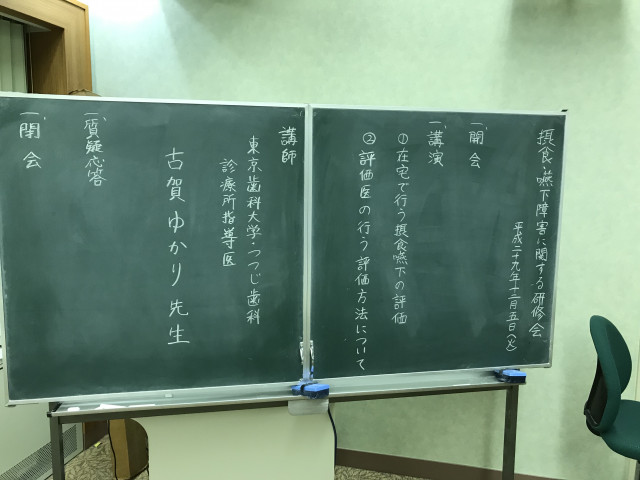 摂食・嚥下障害に関する研修会
平成二十九年十二月五日(火)
一、開会
一、講演
①在宅で行う摂食嚥下の評価
②評価医の行う評価方法について
講師
東京歯科大学・つつじ歯科
診療所指導医
古賀ゆかり先生
一、質疑応答
一、閉会